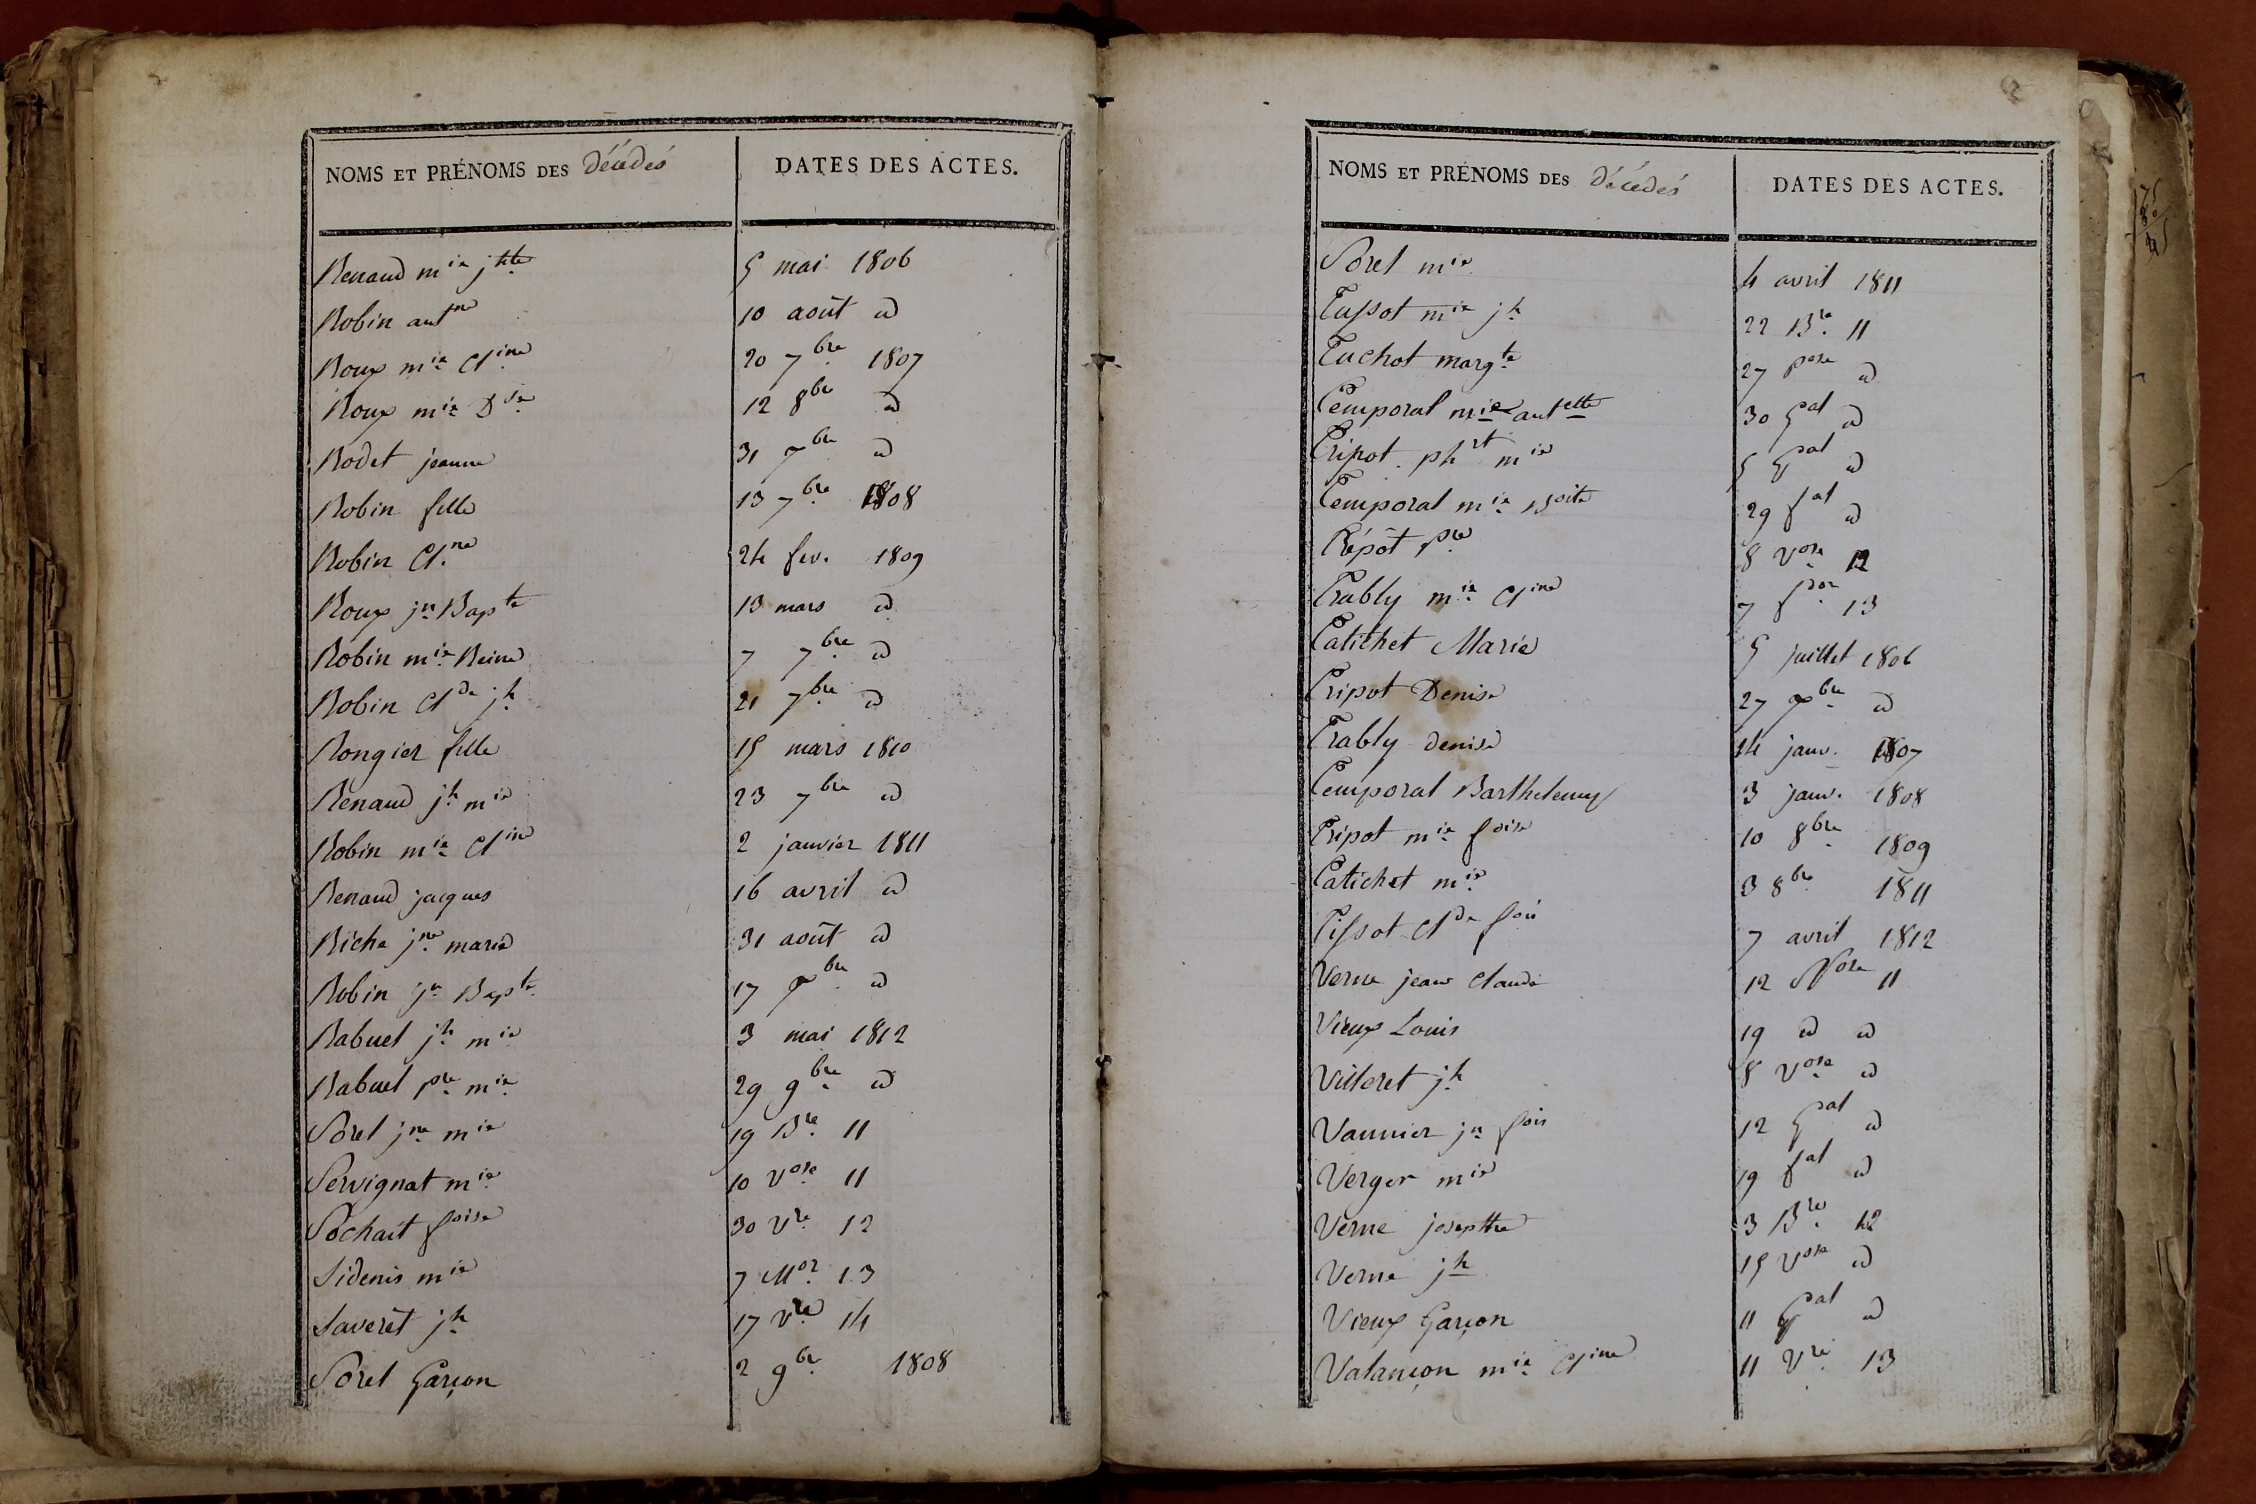 NOMS ET PRÉNOMS DES Décédés DATES DES ACTES.
Renaud mie jhte 5 mai 1806
Robin antne 10 août id
Roux mie Cline 20 7bre 1807
Roux mie Dse 12 8bre id
Rodet jeanne 31 7bre id
Robin fille 13 7bre 1808
Robin Cl.ne 24 fev. 1809
Roux jn Bapte 13 mars id
Robin mie Reine 7 7bre id
Robin Clde jh 21 7bre id
Rongier fille 15 mars 1810
Renaud jh mie 23 7bre id
Robin mie Cline 2 janvier 1811
Renaud jacques 16 avril id
Riche jne marie 31 août id
Robin jn Bapte 17 Xbre id
Rabuel jh mie 3 mai 1812
Rabuel pre mie 29 9bre id
Sorel jne mie 19 Bre 11
Servignat mie 10 Vose 11
Sochait foise 30 Vre 12
Sidenis mie 7 Mor 13
Saveret jh 17 Vre 14
Sorel Garçon 2 9bre 1808
NOMS ET PRÉNOMS DES Décédés DATES DES ACTES.
Sorel mie 4 avril 1811
Tussot mie jh 22 Bre 11
Tuchot margte 27 pose id
Temporal mie antette 30 Gal id
Tripot phrt mie 5 Gal id
Temporal mie Boite 29 fal id
Trépôt pre 8 Vose 12
Trably mie Cline 7 for 13
Catichet Marie 5 juillet 1806
Tripot Denise 27 Xbre id
Trably denise 14 janv. 1807
Temporal Barthelemy 3 janv. 1808
Tripot mie foise 10 8bre 1809
Catichet mie 3 8bre 1811
Tissot Clde fois 7 avril 1812
Verne jean Claude 12 Nose 11
Vieux Louis 19 id id
Villeret jh 8 Vose id
Vannier jn fois 12 Gal id
Verger mie 19 fal id
Verne josephte 3 Bre 12
Verne jh 15 Vose id
Vieux Garçon 11 Gal id
Valançon mie Cline 11 Vre 13